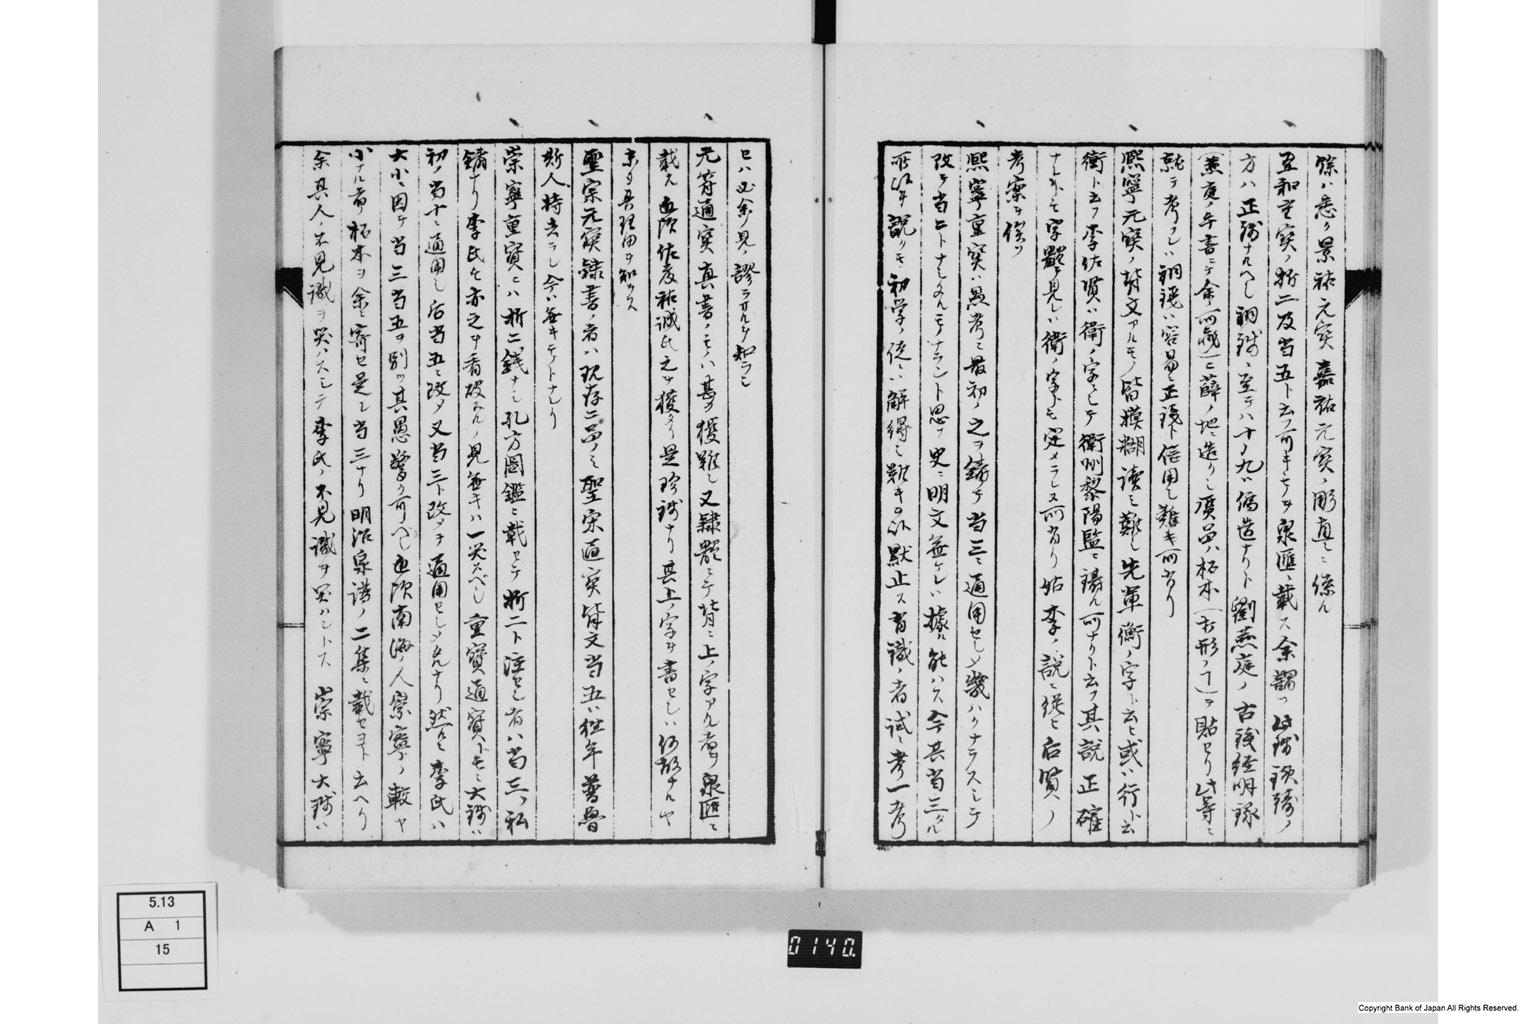 餘ハ悉ク景祐元宝嘉祐元宝ノ彫直シニ係ル
至和重宝ノ折二及当五ト云フ可キモノヲ泉匯ニ載ス余謂フ此鉄銭ノ
方ハ正銭ナルヘシ銅銭ニ至テハ十ノ九ハ偽造ナリト劉燕庭ノ古銭經明琢
就テ考フレハ銅銭ハ容易ニ正銭ト信用シ難キ所アリ
熙寧元宝ノ背文アルモノ皆模糊読ミ難シ先輩衡ノ字ト云ヒ或ハ行ト云
衡ト云フ李佐賢ハ衛ノ字ニシテ衛州黎陽監ニ鋳ル所ナリト云フ其説正確
ナレトモ字體ヲ見レハ衛ノ字トモ定メラレヌ所アリ姑ク李ノ説ニ従ヒ后賢ノ
考案ヲ俟ツ
熙寧重宝ハ愚考ニ最初ノ之ヲ鋳テ当三ニ通用セシメ幾ハクナラスシテ
改テ当二トナシタルモノナラント思フ史ニ明文無ケレハ據ル能ハス今其当三タル
所以ヲ説クモ初学ノ徒ハ解得シ難キヲ以黙止ス有識ノ者ハ試ニ考一考
ヒハ必余ノ見ノ謬ラサルヲ知ラン
元符通宝真書ノモノハ甚タ獲難シ又隷體ニテ背ニ上ノ字アル者ヲ泉匯ニ
載ス近頃佐度祐誠氏之ヲ獲タリ是珍銭ナリ其上ノ字ヲ書セシハ何故ナルヤ
未タ其理由ヲ知ラス
聖宋元宝隷書ノ者ハ現存二品ノミ聖宋通宝背文当五ハ往年
斯人持去ラレ今ハ無キモノトナレリ
崇寧重宝ハ折二銭ナシ孔方図鑑ニ載セテ折二ト注セシ者ハ当三ノ私
鋳ナリ李氏モ亦之ヲ看破スルノ見無キハ一笑スベシ重宝通宝トモニ大銭ハ
初メ当十ニ通用シ后当五ニ改メ又当三ト改メテ通用セシメタルナリ然ルニ李氏ハ
大小ニ因テ当三当五ヲ別ツ其愚驚ク可ヘシ近頃南海ノ人崇寧ノ較ヤ
小ナル者ノ拓本ヲ余ニ寄セ是レ当三ナリ明治泉譜ノ二集ニ載セヨト云ヘリ
余其人ノ不見識ヲ笑ハスシテ李氏ノ不見識ヲ笑ハントス 崇寧大銭ハ
5.13
A 1
15
0140.
Copyright Bank of Japan All Rights Reserved.